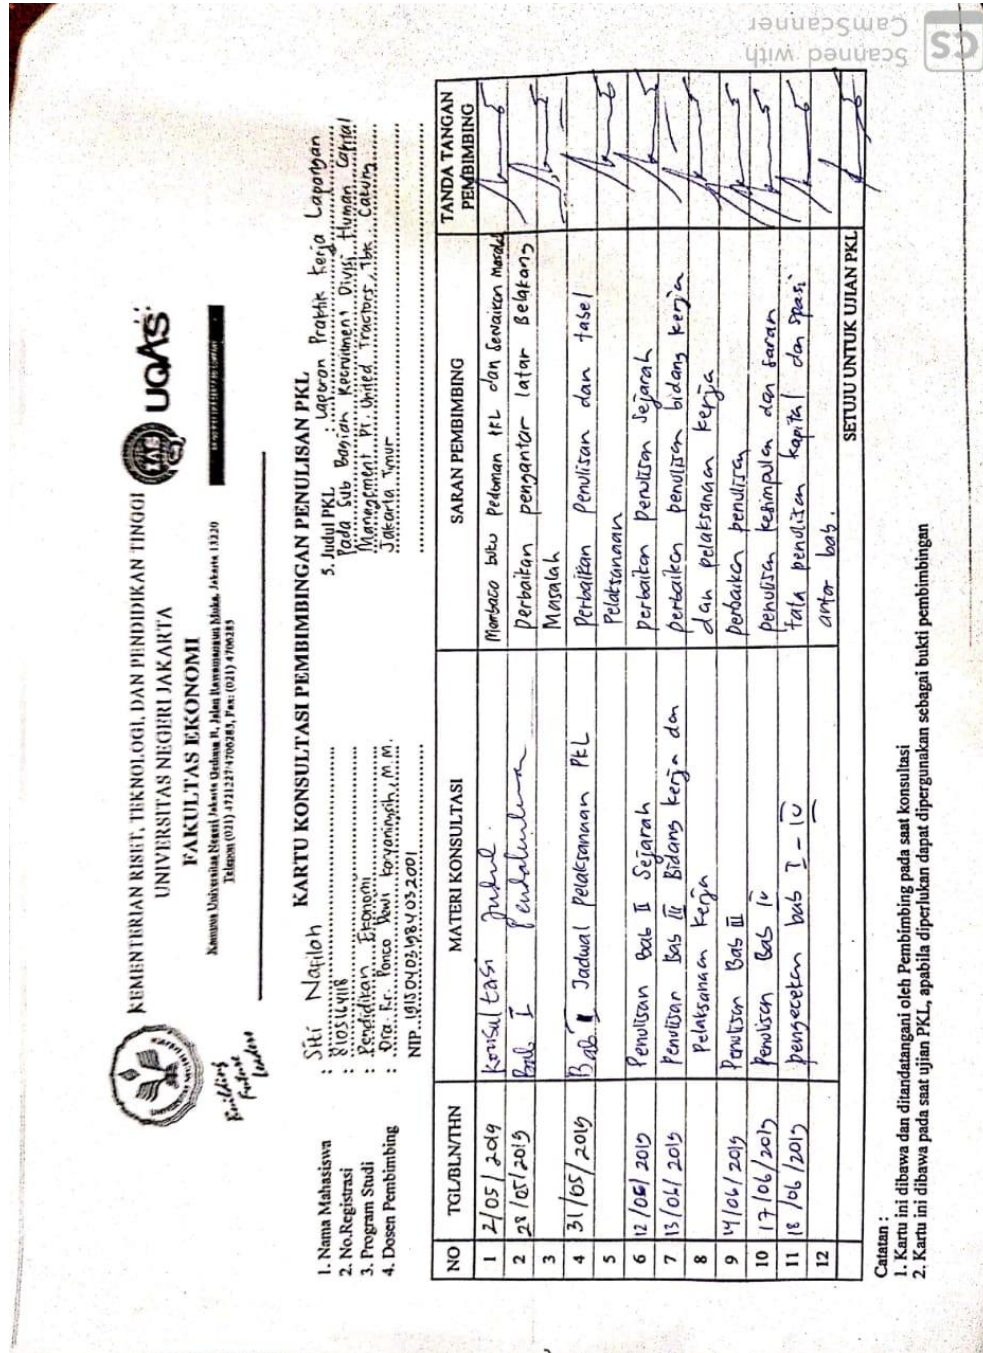 KEMENTERIAN RISET, TEKNOLOGI, DAN PENDIDIKAN TINGGI
UNIVERSITAS NEGERI JAKARTA
FAKULTAS EKONOMI
Kampus Universitas Negeri Jakarta Gedung R, Jalan Rawamangun Muka, Jakarta 13220
Telepon (021) 4721227/4706285, Fax: (021) 4706285
Building
Future
Leaders
UQAS
KARTU KONSULTASI PEMBIMBINGAN PENULISAN PKL
1. Nama Mahasiswa : Siti Nafiloh
2. No.Registrasi : 8105164118
3. Program Studi : Pendidikan Ekonomi
4. Dosen Pembimbing : Dra. Rr. Ponco Dewi Karyaningsih, M.M.
NIP. 196504031984032001
5. Judul PKL : Laporan Praktik Kerja Lapangan
Pada Sub Bagian Recruitment Divisi Human Capital
Management Pt. United Tractors, Tbk. Cakung
Jakarta Timur
NO TGL/BLN/THN MATERI KONSULTASI SARAN PEMBIMBING TANDA TANGAN PEMBIMBING
1 2/05/2019 Konsultasi Judul. Membaca buku Pedoman PKL dan
2 28/05/2019 Bab I Pendahuluan Perbaikan pengantar latar Belakang
3 Masalah
4 31/05/2019 Bab I Jadwal pelaksanaan PKL Perbaikan Penulisan dan tabel
5 Pelaksanaan
6 12/06/2019 Penulisan Bab II Sejarah perbaikan penulisan Sejarah
7 13/06/2019 Penulisan Bab III Bidang Kerja dan perbaikan penulisan bidang kerja
8 Pelaksanaan Kerja dan pelaksanaan kerja
9 14/06/2019 Penulisan Bab III perbaikan penulisan
10 17/06/2019 Penulisan Bab IV penulisan kesimpulan dan saran
11 18/06/2019 pengecekan bab I - IV tata penulisan kapital dan spasi
12 antar bab.
SETUJU UNTUK UJIAN PKL
Catatan :
1. Kartu ini dibawa dan ditandatangani oleh Pembimbing pada saat konsultasi
2. Kartu ini dibawa pada saat ujian PKL, apabila diperlukan dapat dipergunakan sebagai bukti pembimbingan
CS
Scanned with
CamScanner